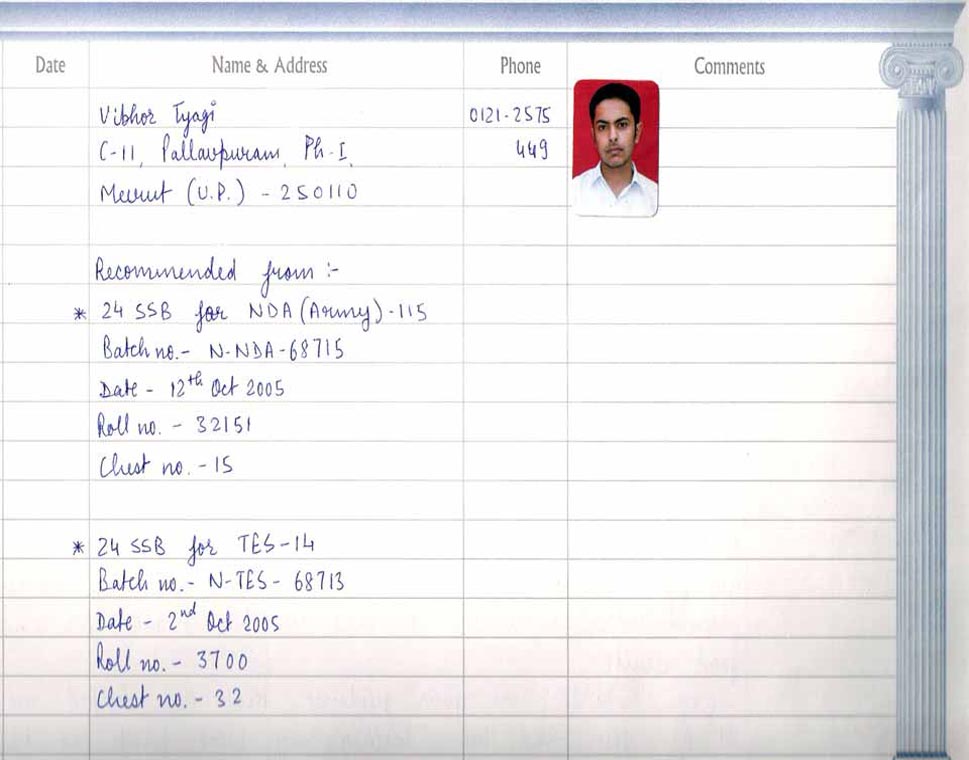 Date Name & Address Phone Comments
Vibhor Tyagi 0121-2575
C-11, Pallavpuram, Ph-I, 449
Meerut (U.P.) - 250110
Recommended from :-
* 24 SSB for NDA (Army) - 115
Batch no. - N-NDA-68715
Date - 12th Oct 2005
Roll no. - 32151
Chest no. - 15
* 24 SSB for TES-14
Batch no. - N-TES - 68713
Date - 2nd Oct 2005
Roll no. - 3700
Chest no. - 32